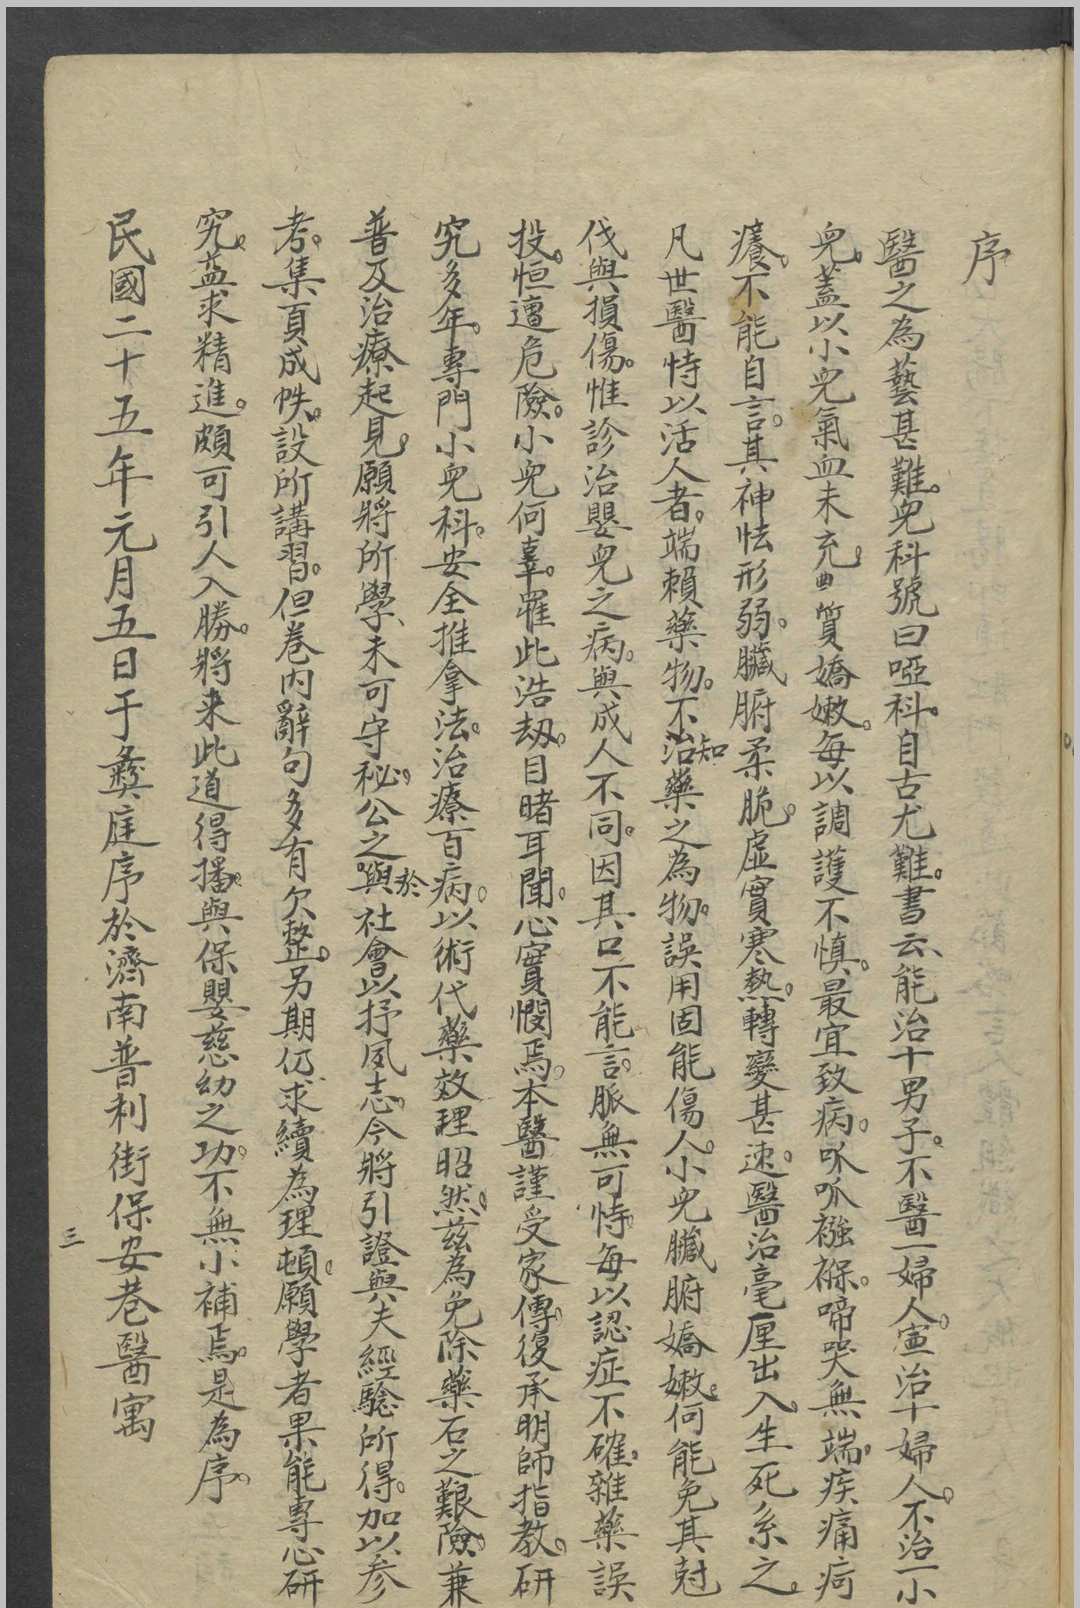 序
醫之為藝甚難。兒科號曰啞科。自古尤難。書云、能治十男子。不醫一婦人。寧治十婦人。不治一小
兒。蓋以小兒氣血未充。質嬌嫩。每以調護不慎。最宜致病。呱呱襁褓。啼哭無端。疾痛疴
癢。不能自言。其神怯形弱。臟腑柔脆。虛實寒熱。轉變甚速。醫治毫厘出入。生死系之。
凡世醫恃以活人者。端賴藥物。不知藥之為物。誤用固能傷人。小兒臟腑嬌嫩。何能免其尅
伐與損傷。惟診治嬰兒之病。與成人不同。因其口不能言。脈無可恃。每以認症不確。雜藥誤
投。恒遭危險。小兒何辜。罹此浩劫。目睹耳聞。心實憫焉。本醫謹受家傳。復承明師指教。研
究多年。專門小兒科。安全推拿法。治療百病。以術代藥效理昭然。茲為免除藥石之艱險。兼
普及治療起見。願將所學、未可守秘。公之於社會以抒夙志。今將引證與夫經驗所得。加以參
考。集頁成帙。設所講習。但卷內辭句多有欠整。另期仍求續為理頓。願學者果能專心研
究。益求精進。頗可引人入勝。將來此道得播。與保嬰慈幼之功。不無小補焉。是為序。
民國二十五年元月五日于彝庭序於濟南普利街保安巷醫寓
三